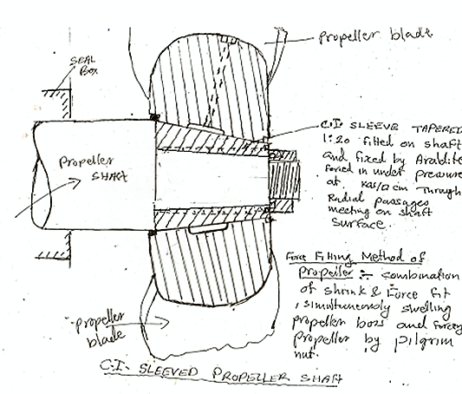 propeller blade
SEAL
BOX
C.I SLEEVE TAPERED
1:20 fitted on shaft
and fixed by Araldite
forced in under pressure
at through
Radial passages
meeting on shaft
surface.
Propeller
SHAFT
Force Fitting Method of
Propeller :- combination
of shrink & Force fit
, simultaneously swelling
propeller boss and forcing
propeller by pilgrim
nut.
propeller
blade
C.I. SLEEVED PROPELLER SHAFT